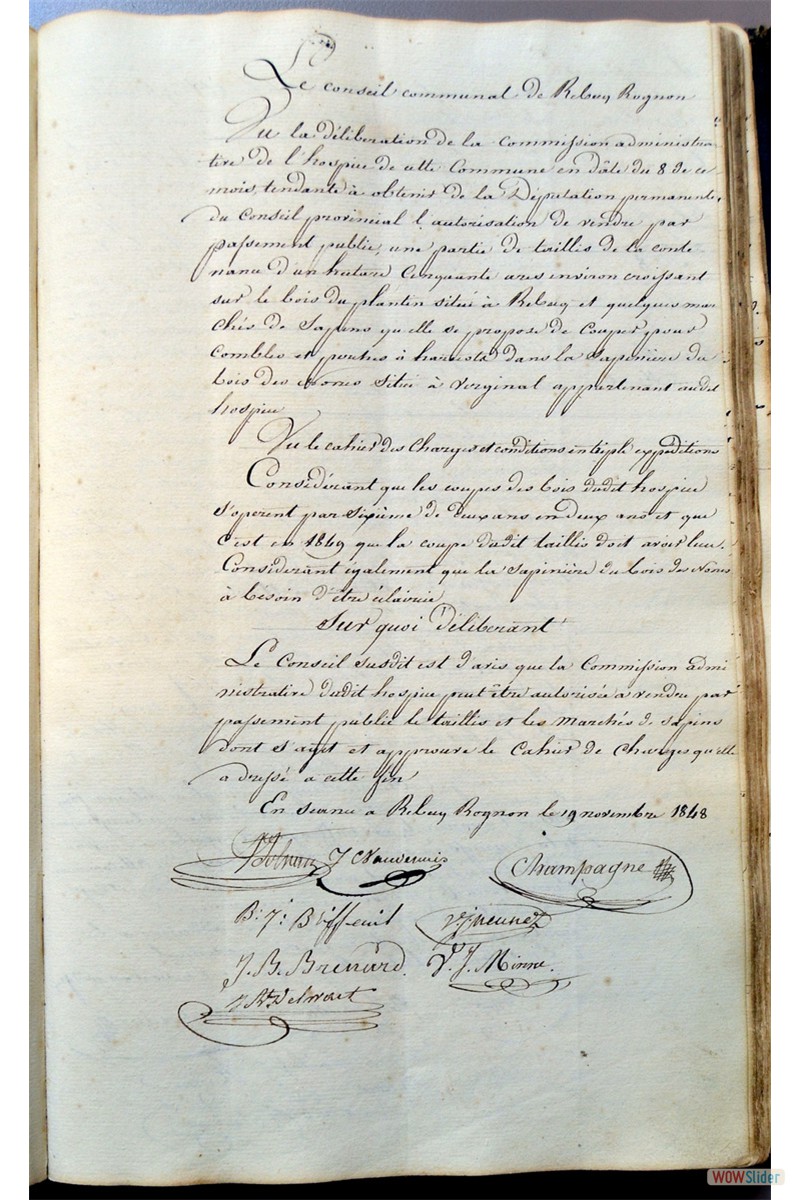 Le Conseil communal de Rebecq Rognon
Vu la déliberation de la commission administra
tive de l'hospice de cette Commune en dâte du 8 de ce
mois, tendante à obtenir de la Députation permanente,
du Conseil provincial l'autorisation de vendre par
passement public, une partie de taillis de la conte
nance d'un hectare Cinquante ares environ croissant
sur le bois du plantin situé à Rebecq et quelques mar
chés de Sapins qu'elle se propose de Couper pour
Combles et poutres à dans la Sapinière du
bois des Nones Situé à Virginal appartenant audit
hospice
Vu le cahier des Charges et conditions en triple expéditions
Considérant que les coupes des bois dudit hospice
s'operent par Sixième de deux ans en deux ans et que
C'est en 1849 que la coupe dudit taillis doit avoir lieu.
Considerant également que la Sapinière du bois des Nones
à besoin d'être éclaircie
Sur quoi déliberant
Le Conseil Susdit est d'avis que la Commission admi
nistrative dudit hospice peut être autorisée à vendre par
passement public le taillis et les marchés de sapins
dont s'agit et approuve le Cahier de Charges qu'elle
a dressé a cette fin
En séance a Rebecq Rognon le 19 novembre 1848
Champagne
B. J.
J. B. Brenard. V. J. Minne.
WOWSlider